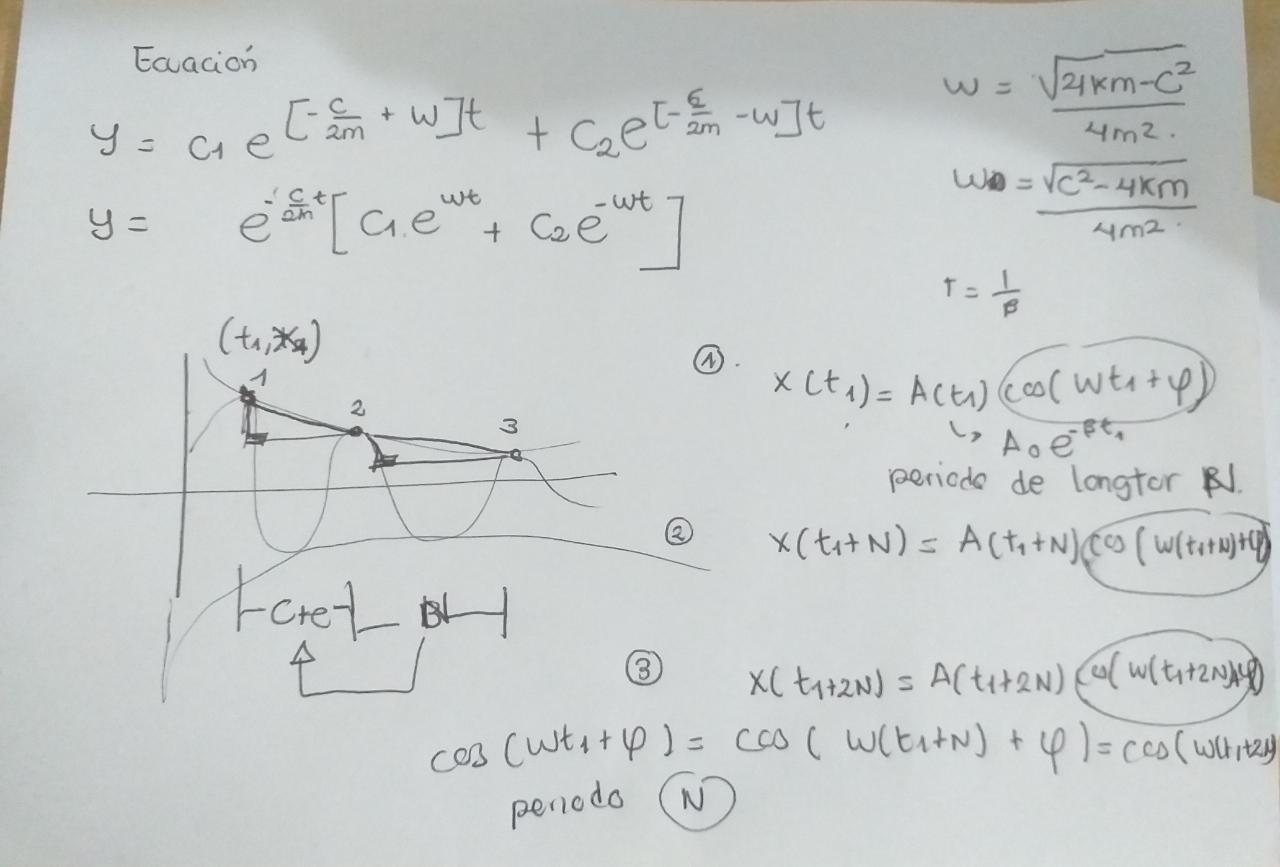 Ecuación
y = c1 e^[-c/2m + w]t + c2 e^[-c/2m - w]t
w = √4km-c² / 4m2.
y = e^-c/2m t [c1.e^wt + c2 e^-wt]
w = √c²-4km / 4m2.
τ = 1/β
(t1, x1)
1
2
3
① . x(t1) = A(t1) cos(wt1+φ)
↳ A0 e^-βt1
periodo de longtor N.
② x(t1+N) = A(t1+N) cos(w(t1+N)+φ)
|-Cte-|_ N-|
③ x(t1+2N) = A(t1+2N) cos(w(t1+2N)+φ)
cos(wt1+φ) = cos(w(t1+N)+φ) = cos(w(t1+2N)
periodo N